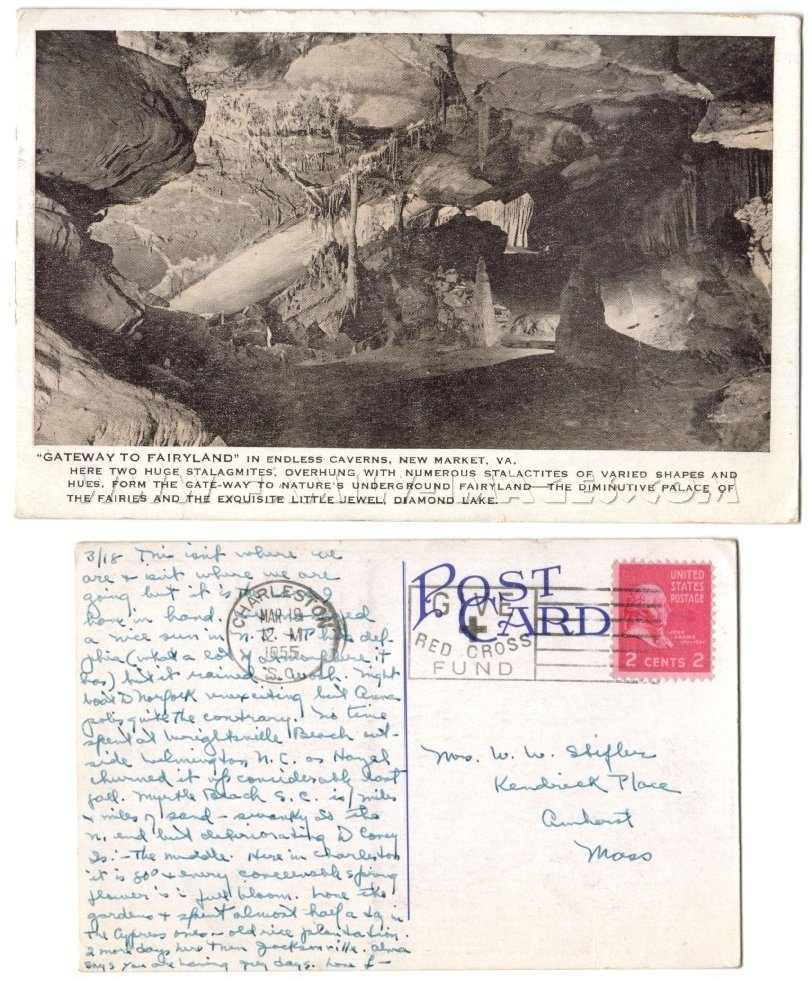 "GATEWAY TO FAIRYLAND" IN ENDLESS CAVERNS, NEW MARKET, VA.
HERE TWO HUGE STALAGMITES, OVERHUNG WITH NUMEROUS STALACTITES OF VARIED SHAPES AND
HUES, FORM THE GATE-WAY TO NATURE'S UNDERGROUND FAIRYLAND—THE DIMINUTIVE PALACE OF
THE FAIRIES AND THE EXQUISITE LITTLE JEWEL, DIAMOND LAKE.
3/18 This isn't where we
are & isn't where we are
going but it is the
have in hand.
a nice sun in N.Y. &
phia (what a lot of atmosphere it
has) but it rained south. Night
boat D Norfolk unexciting but Anna
polis quite the contrary. No time
spent at Wrightsville Beach out-
side Wilmington, N.C. as Hazel
churned it up considerably last
fall. Myrtle Beach S.C. is miles
& miles of sand - swanky at the
n. end but deteriorating D Coney
Is. - the middle. Here in Charleston
it is 80° & every conceivable spring
flower is in full bloom. Love the
gardens & spent almost half a day in
the Cypress ones - old rice plantation.
2 more days here then Jacksonville. Alma
says you are having grey days. Love
POST
CARD
CHARLESTON
MAR 18
12 MT
1955
S.C.
GIVE
RED CROSS
FUND
UNITED
STATES
POSTAGE
JOHN
ADAMS
2 CENTS 2
Mrs. W. W. Shifler
Kendrick Place
Amherst
Mass